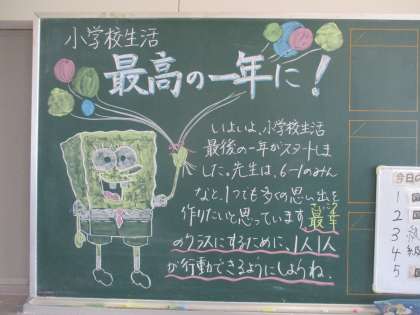 小学校生活
最高の一年に！
いよいよ、小学校生活
最後の一年がスタートしま
した。先生は、6-1のみん
なと、1つでも多くの思い出を
作りたいと思っています。最幸
のクラスにするために、1人1人
が行動できるようにしようね。
今日の
1
2
3
4
5